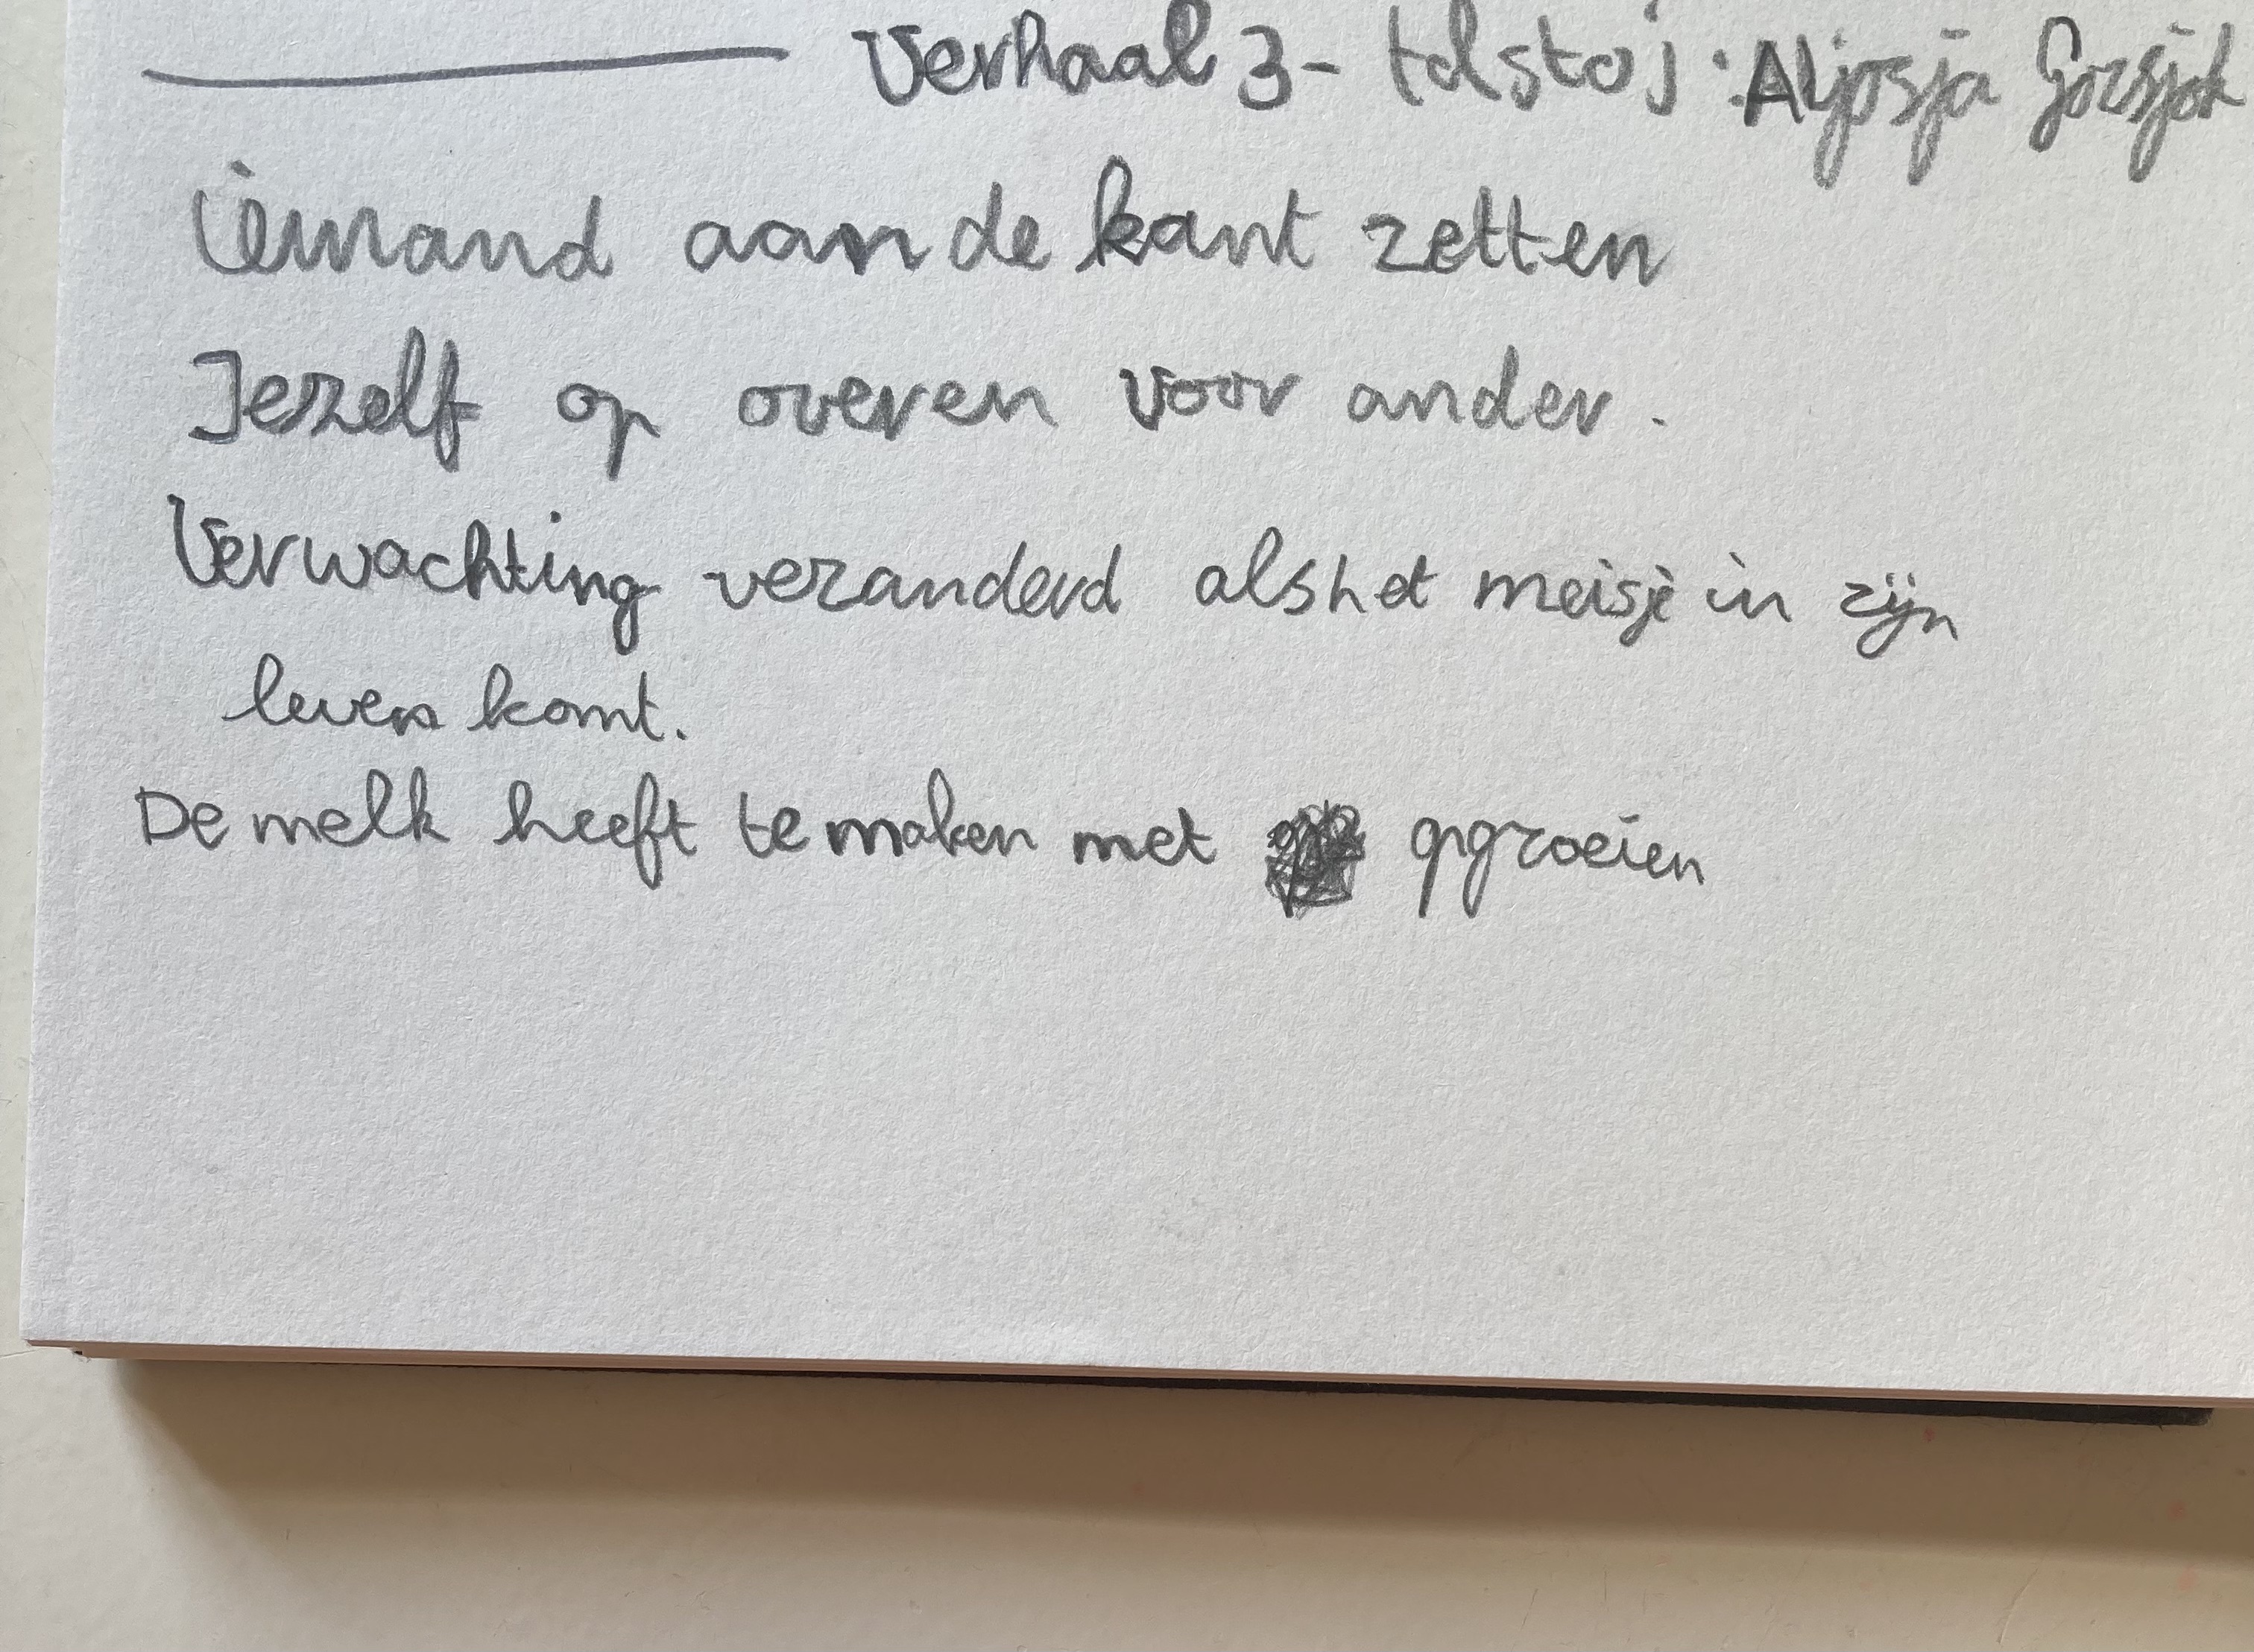 Verhaal 3 - tolstoj: Aljosja Gorsjok
iemand aan de kant zetten
Jezelf op overen voor ander.
Verwachting veranderd als het meisje in zijn
leven komt.
De melk heeft te maken met opgroeien